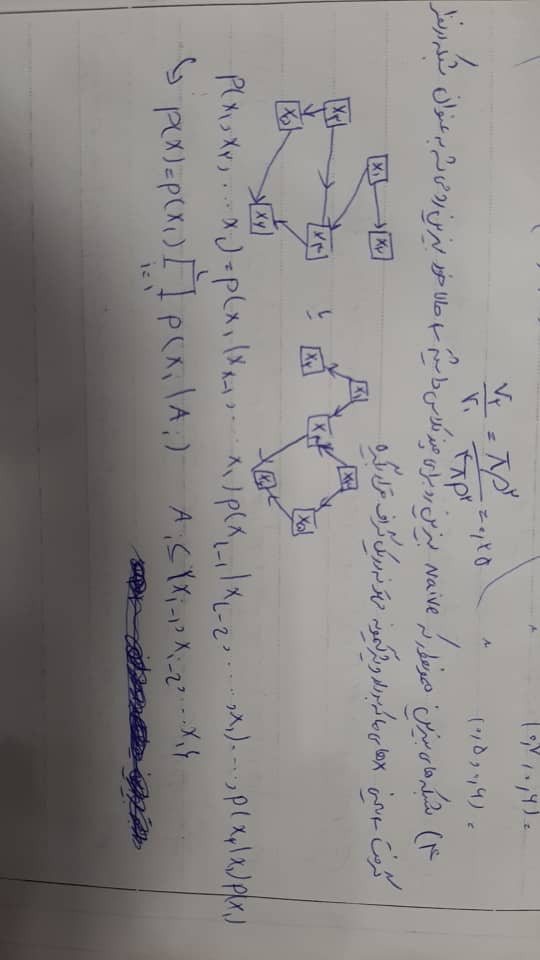 (۰٫۷ ، ۰٫۶) .
(۰٫۵ ، ۰٫۶) .
V₂/V. = πρ²/۴πρ² = ۰٫۲۵
۴) شبکه های بیزین همونطور که Naive بیزین رو برای چند کلاس داشتیم حالا خود بیزین رو می شه به عنوان شبکه در نظر
گرفت یعنی Xهای ما که بردار ویژگیمونه میتونه در یک گراف قرار بگیره
X۱ X۲
X۳ X۴
X۵ X۶
یا
X۱ X۳
X۲ X۴ X۵
X۶
P(X₁,X₂, ... X_L) = P(X_L|X_{L-1}, ... X₁) P(X_{L-1}|X_{L-2}, ...., X₁) ...., P(X₂|X₁) P(X₁)
P(X) = P(X₁) ∏_{i=1}^{L} P(X_i | A_i) A_i ⊆ {X_{i-1}, X_{i-2}, ... X₁}